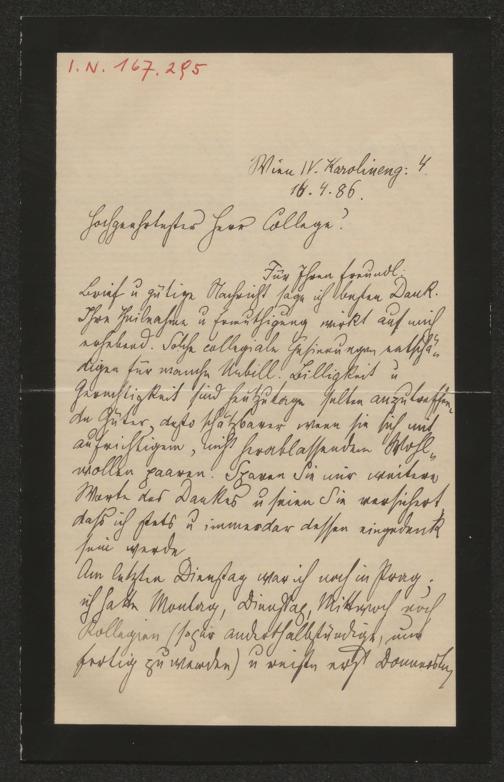 I.N. 167.295
Wien IV. Karolineng: 4
14.4.86.
Hochgeehrtester Herr College!
Für Ihren freundl.
Brief u gütige Nachricht sage ich besten Dank.
Ihre Theilnahme u Ermuthigung wirkt auf mich
erhebend. Solche collegiale Gesinnungen entschä„
digen für manche Unbill. Billigkeit u
Gerechtigkeit sind heutzutage selten anzutreffen„
de Güter, desto schätzbarer wenn sie sich mit
aufrichtigem, nicht herablassendem Wohl„
wollen paaren. Sparen Sie mir weitere
Worte des Dankes u seien Sie versichert,
dass ich stets u immerdar dessen eingedenk
sein werde
Am letzten Dienstag war ich noch in Prag,
ich hatte Montag, Dienstag, Mittwoch noch
Kollegien (sogar anderthalbstündige, um
fertig zu werden) u reiste erst Donnerstag